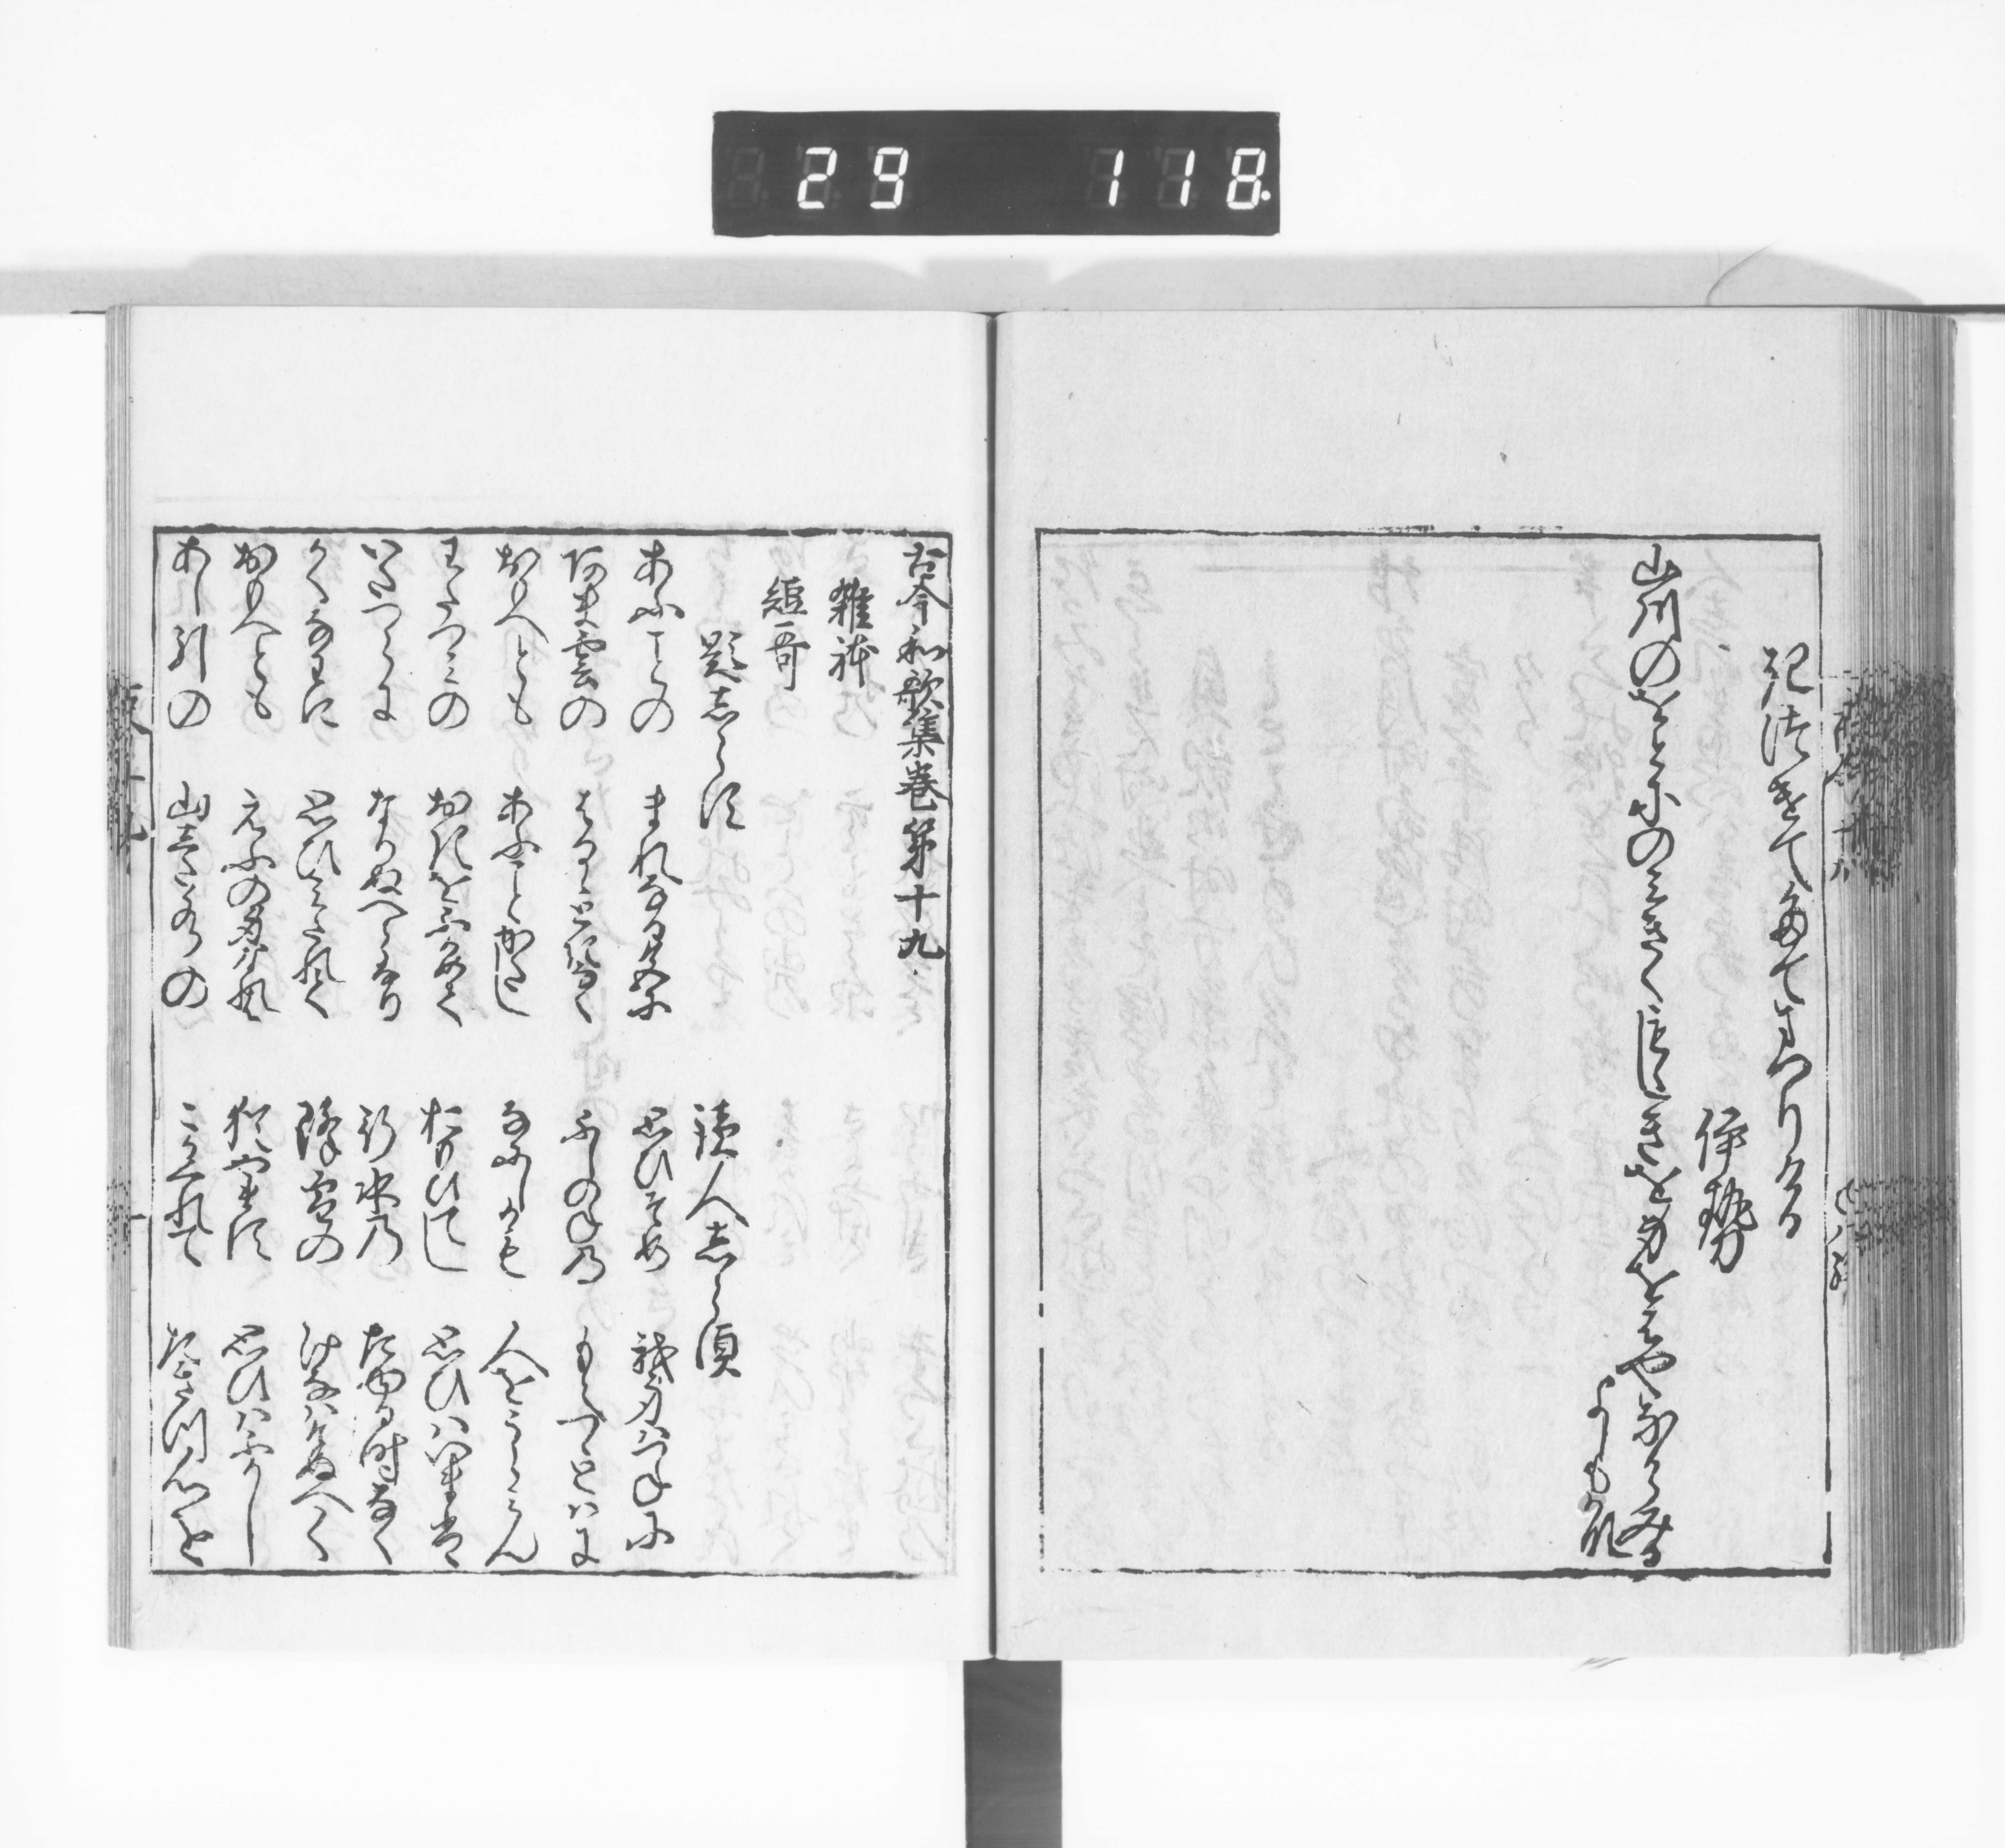 29 118
記つきてたてまつりける
伊勢
山川のをとにのみきくもゝしきを身をはやなからみる
よしもかな
古今和歌集巻第十九
雑躰
短哥
題志らす
読人志ら須
あふ事の まれなる色に 思ひそめ 我身はつねに
あま雲の はるゝ時なく ふしのねの もえつゝとはに
おもへとも あふことかたし なにしかも 人をうらみん
わたつみの おきをふかめて おもひてし 思ひはいまは
いたつらに なりぬへらなり 行水の たゆる時なく
かくなわに 思ひみたれて 降雪の けなはけぬへく
おもへとも えふの身なれは 猶やます 思ひはふかし
あし引の 山下水の こかくれて たきつ心を